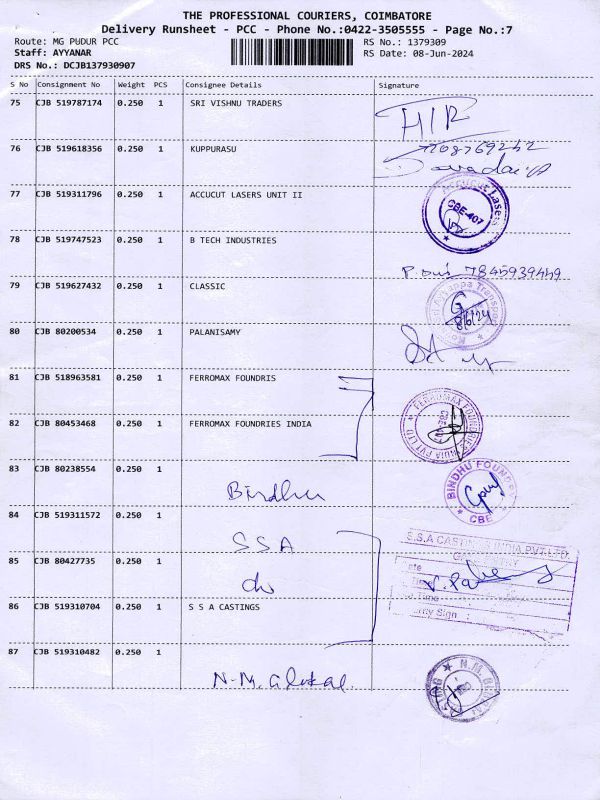 THE PROFESSIONAL COURIERS, COIMBATORE
Delivery Runsheet - PCC - Phone No.:0422-3505555 - Page No.:7
Route: MG PUDUR PCC RS No.: 1379309
Staff: AYYANAR RS Date: 08-Jun-2024
DRS No.: DCJB137930907
S No Consignment No Weight PCS Consignee Details Signature
75 CJB 519787174 0.250 1 SRI VISHNU TRADERS
76 CJB 519618356 0.250 1 KUPPURASU
77 CJB 519311796 0.250 1 ACCUCUT LASERS UNIT II
CBE-407
78 CJB 519747523 0.250 1 B TECH INDUSTRIES
7845939449
79 CJB 519627432 0.250 1 CLASSIC
8/6/24
80 CJB 80200534 0.250 1 PALANISAMY
81 CJB 518963581 0.250 1 FERROMAX FOUNDRIS
82 CJB 80453468 0.250 1 FERROMAX FOUNDRIES INDIA
83 CJB 80238554 0.250 1 Bindhu
BINDHU FOUNDRY
CBE
84 CJB 519311572 0.250 1 SSA
S.S.A CASTINGS INDIA PVT.LTD
85 CJB 80427735 0.250 1 do
86 CJB 519310704 0.250 1 S S A CASTINGS
87 CJB 519310482 0.250 1 N.M. Global